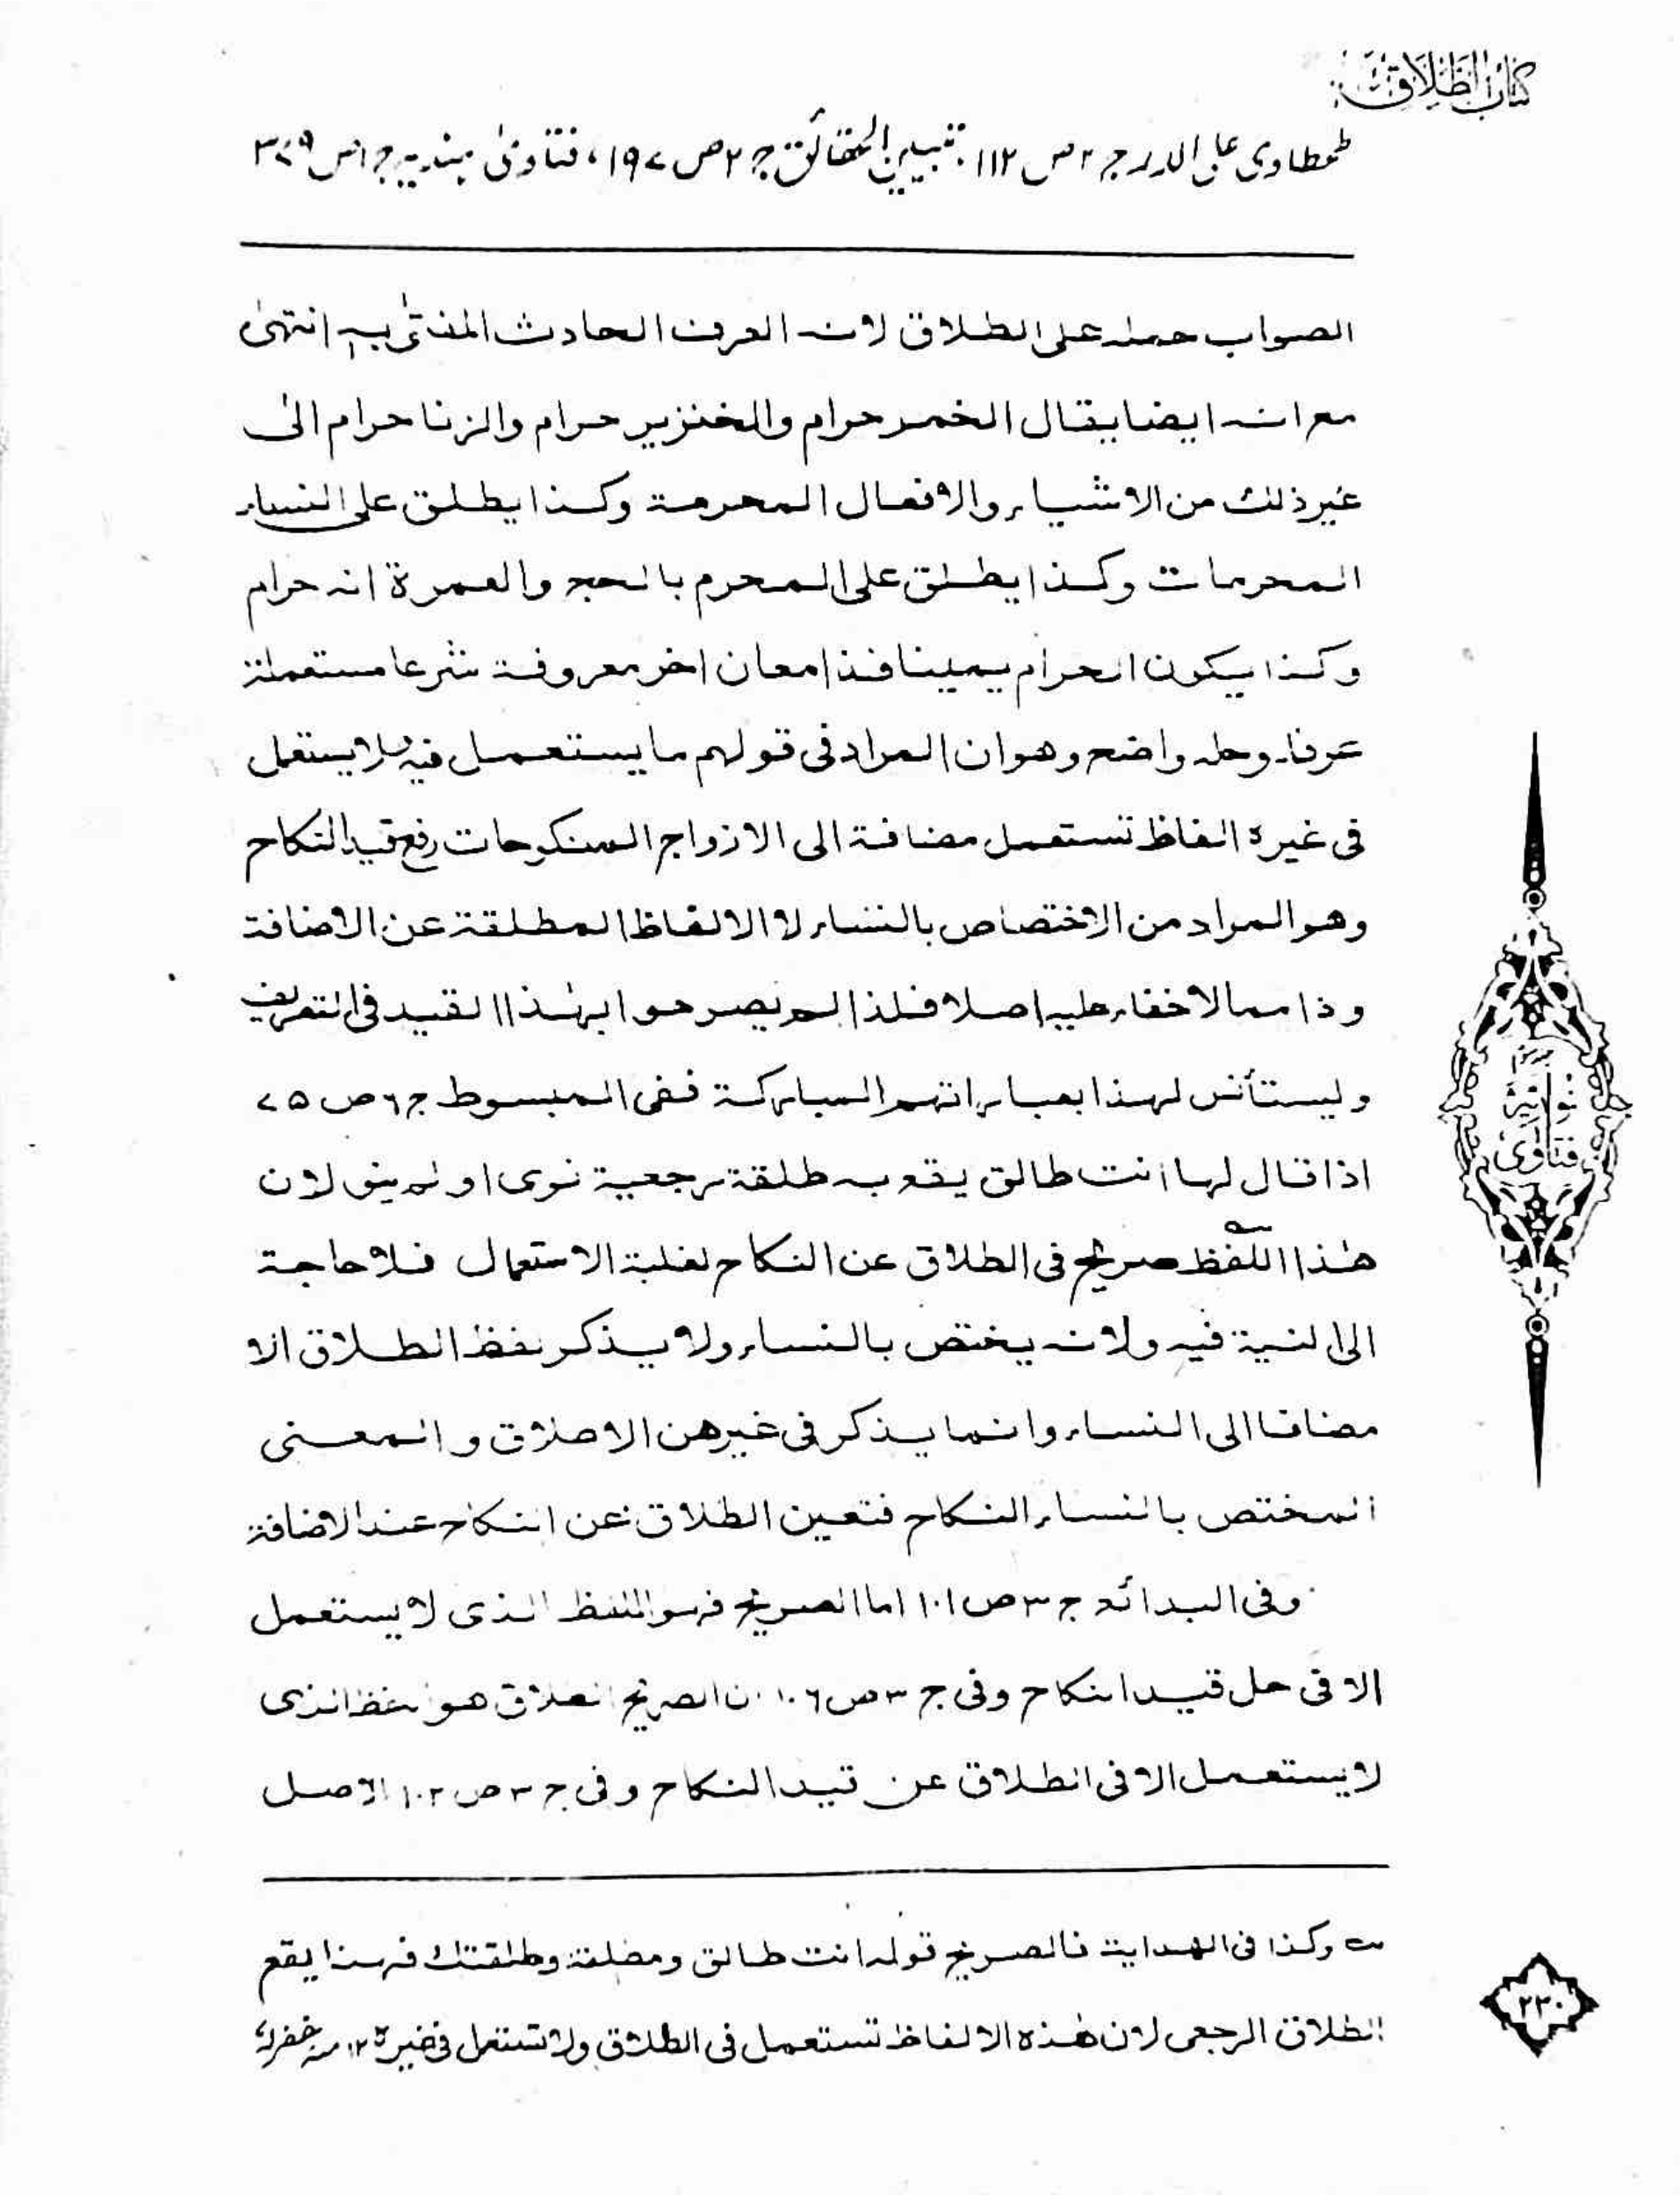 كتاب الطلاق
طحطاوی علی الدر ج ۲ ص ۱۱۲، تبیین الحقائق ج ۲ ص ۱۹۷، فتاویٰ ہندیہ ج ۱ ص ۳۷۹
الصواب حمله على الطلاق لانه العرف الحادث المفتىٰ به انتهىٰ
مع انه ايضا يقال الخمر حرام والخنزير حرام والزنا حرام الى
غير ذلك من الاشياء والافعال المحرمة وكذا يطلق على النساء
المحرمات وكذا يطلق على المحرم بالحج والعمرة انه حرام
وكذا يكون الحرام يمينا فذا معان اخر معروفة شرعا مستعملة
عرفا۔ وحله واضح وهو ان المراد فى قولهم ما يستعمل فيه ولا يستعمل
فى غيره الفاظ تستعمل مضافة الى الازواج المنكوحات رفع قيد النكاح
وهو المراد من الاختصاص بالنساء لا الالفاظ المطلقة عن الاضافة
وذا مما لا خفاء عليه اصلا فلذا لم يصرحوا بهٰذا القيد فى التعريف
وليستأنس لهذا بعباراتهم المباركة ففى المبسوط ج ۶ ص ۷۵
اذا قال لها انت طالق يقع به طلقة رجعية نوى او لم ينو لان
هٰذا اللفظ صريح فى الطلاق عن النكاح لغلبة الاستعمال فلا حاجة
الى النية فيه ولانه يختص بالنساء ولا يذكر لفظ الطلاق الا
مضافا الى النساء وانما يذكر فى غيرهن الاطلاق والمعنى
المختص بالنساء النكاح فتعين الطلاق عن النكاح عند الاضافة
وفى البدائع ج ۳ ص ۱۰۱ اما الصريح فهو اللفظ الذى لا يستعمل
الا فى حل قيد النكاح وفى ج ۳ ص ۱۰۶ ان الصريح الطلاق هو اللفظ الذى
لا يستعمل الا فى الطلاق عن قيد النكاح وفى ج ۳ ص ۱۰۲ الاصل
وكذا فى الهداية فالصريح قوله انت طالق ومطلقة وطلقتك فهذا يقع
الطلاق الرجعى لان هٰذه الالفاظ تستعمل فى الطلاق ولا تستعمل فى غيره ۱۲ منه غفرلہ
فتاوىٰ
نوریہ
۲۳۰